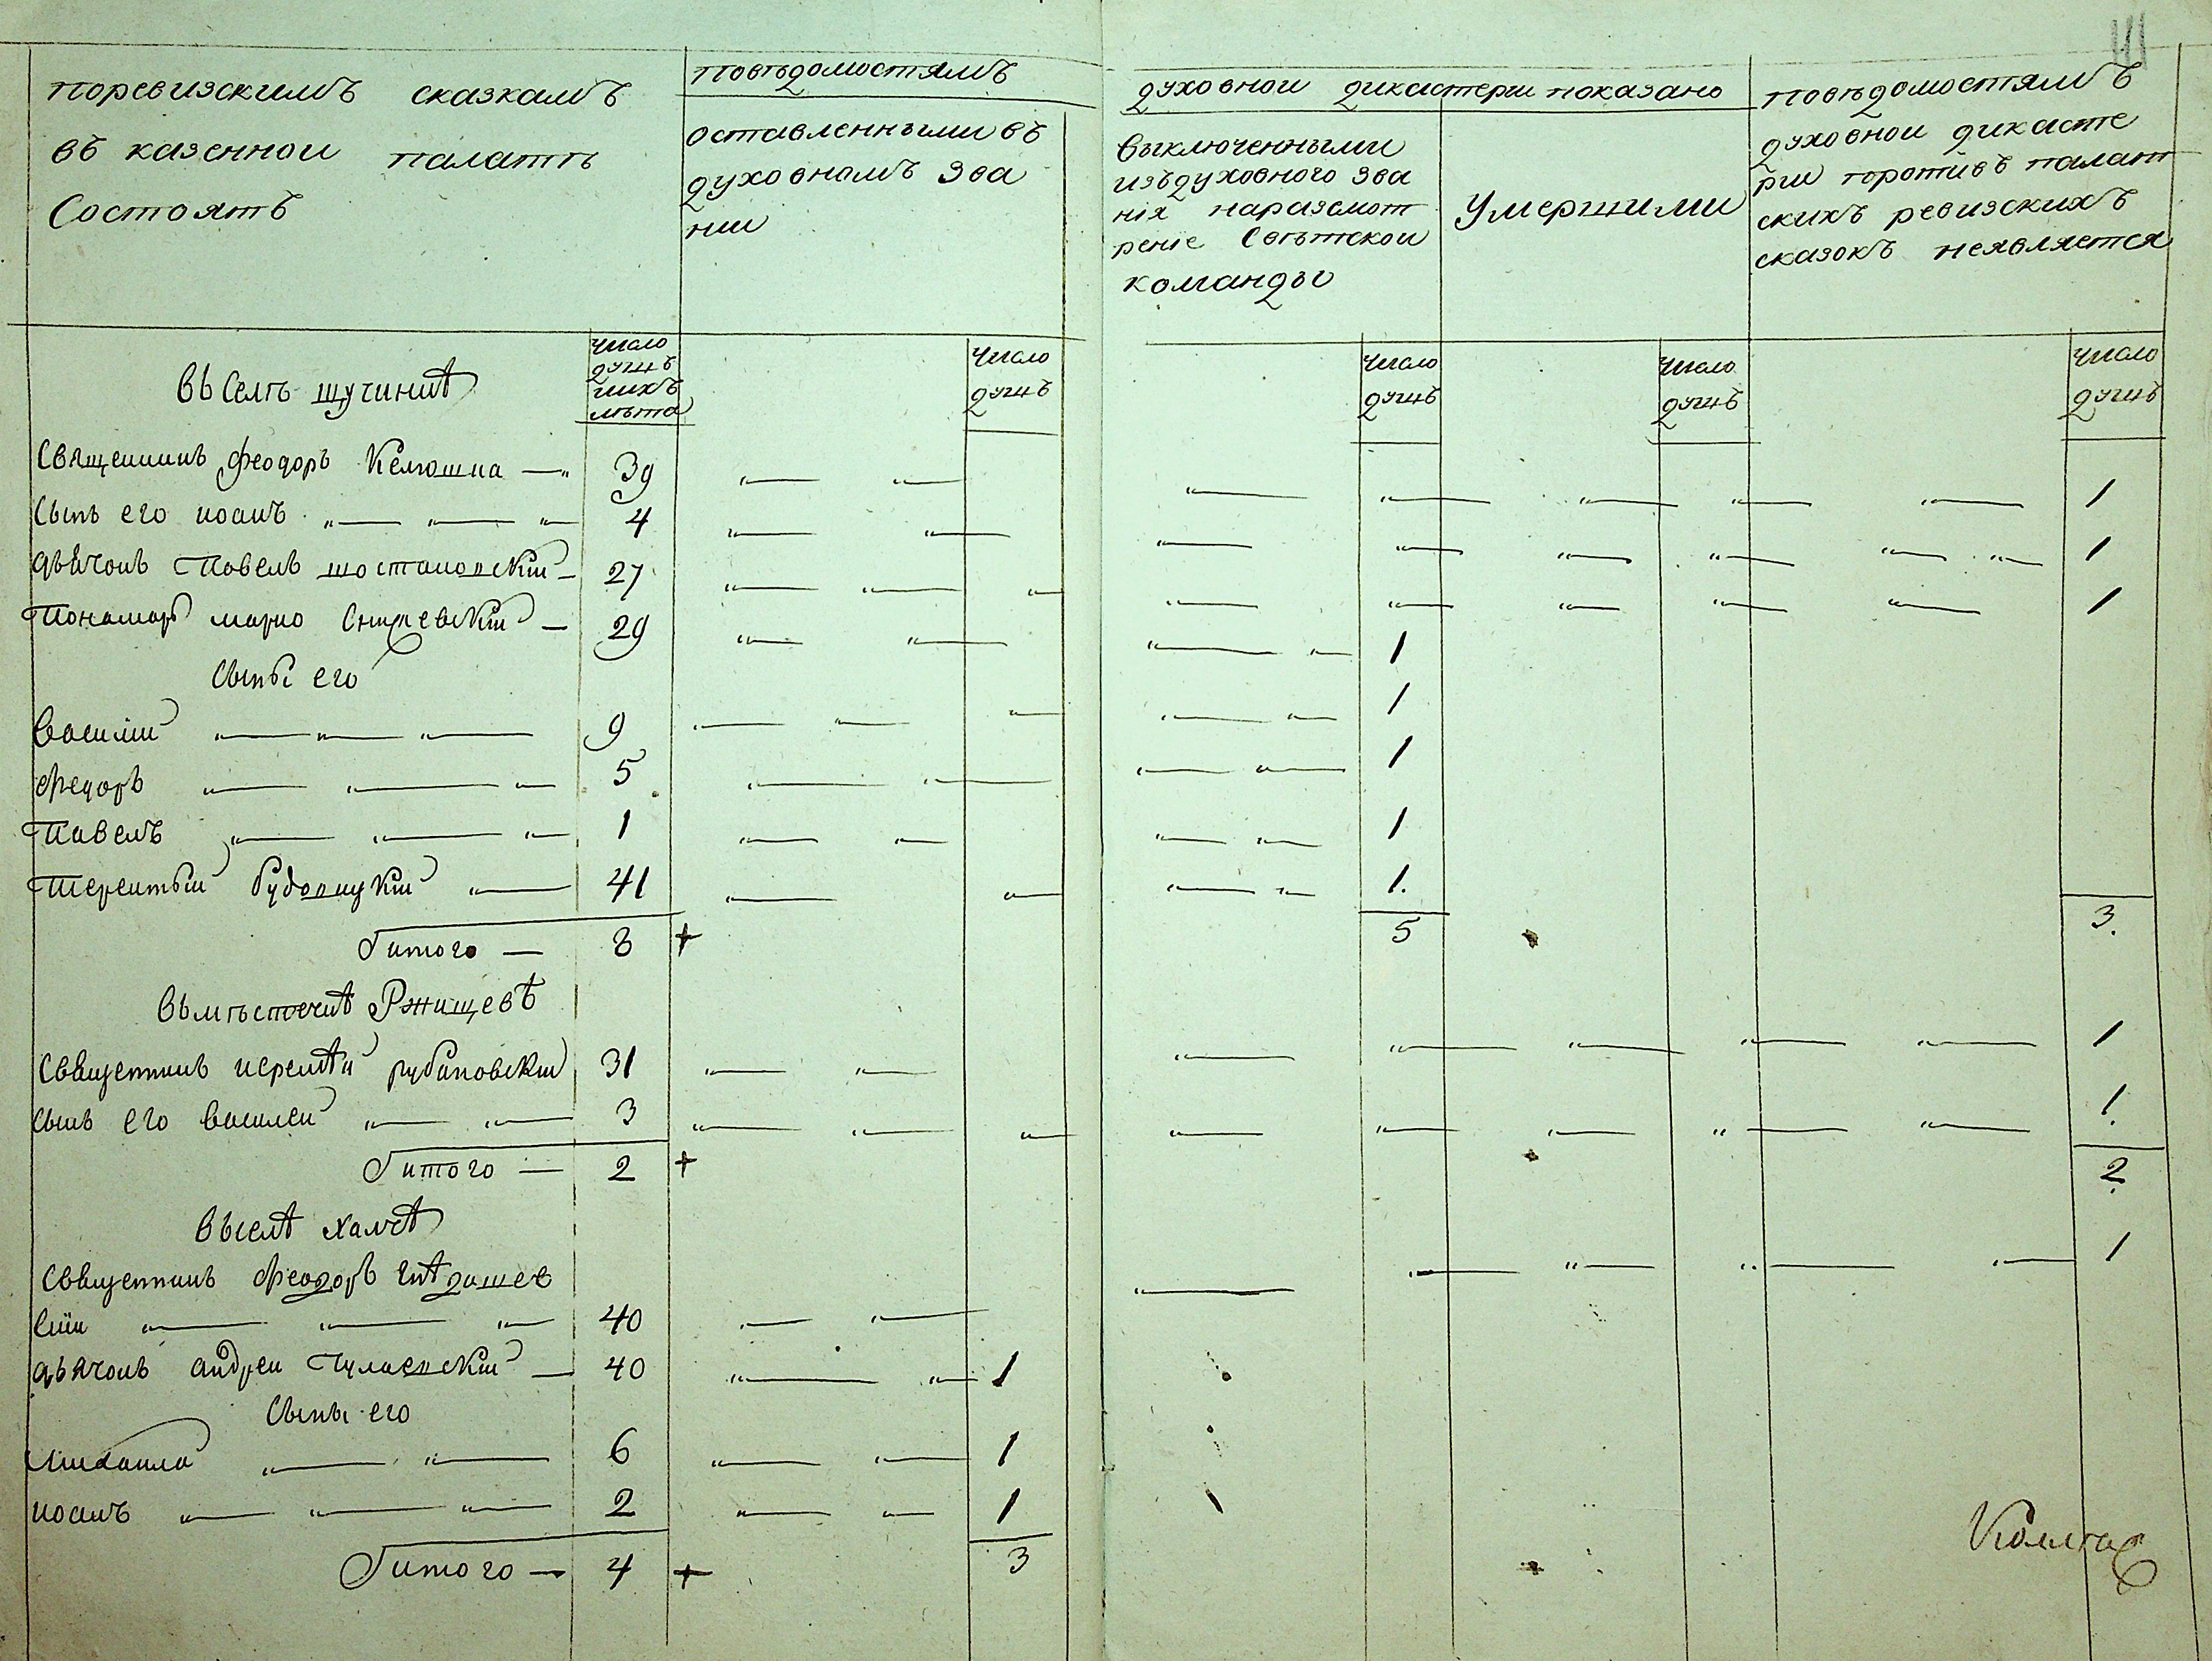 41
поревизскимъ сказкамъ
въ казенной палатѣ
Состоятъ
повѣдомостямъ
оставленными въ
духовномъ зва
нии
духовной дикастерии показано
выключенными
изъ духовного зва
нія наразсмот
реніе Свѣтской
команды
Умершими
повѣдомостямъ
духовной дикасте
рии противъ палат
скихъ ревизскихъ
сказокъ неявляется
число
душъ
ихъ
лѣта
число
душъ
число
душъ
число
душъ
число
душъ
въ Селѣ щучинкѣ
Священникъ феодоръ — 39 1
Сынъ его иоанъ — 4 1
дьячокъ Павелъ — 27 1
Пономарь марко — 29 1
Сыны его
Василій — 9 1
Федоръ — 5 1
Павелъ — 1 1
Терентій — 41 1
итого — 8 + 5 3
въместечкѣ Ржищевѣ
Священникъ иеремѣй рубановскій 31 1
Сынъ его Василей — 3 1
итого — 2 + 2
въселѣ халчѣ
Священникъ Феодоръ 1
— 40
дьячокъ андрей — 40 1
Сыны его
Михаила — 6 1
иоанъ — 2 1
итого — 4 + 3